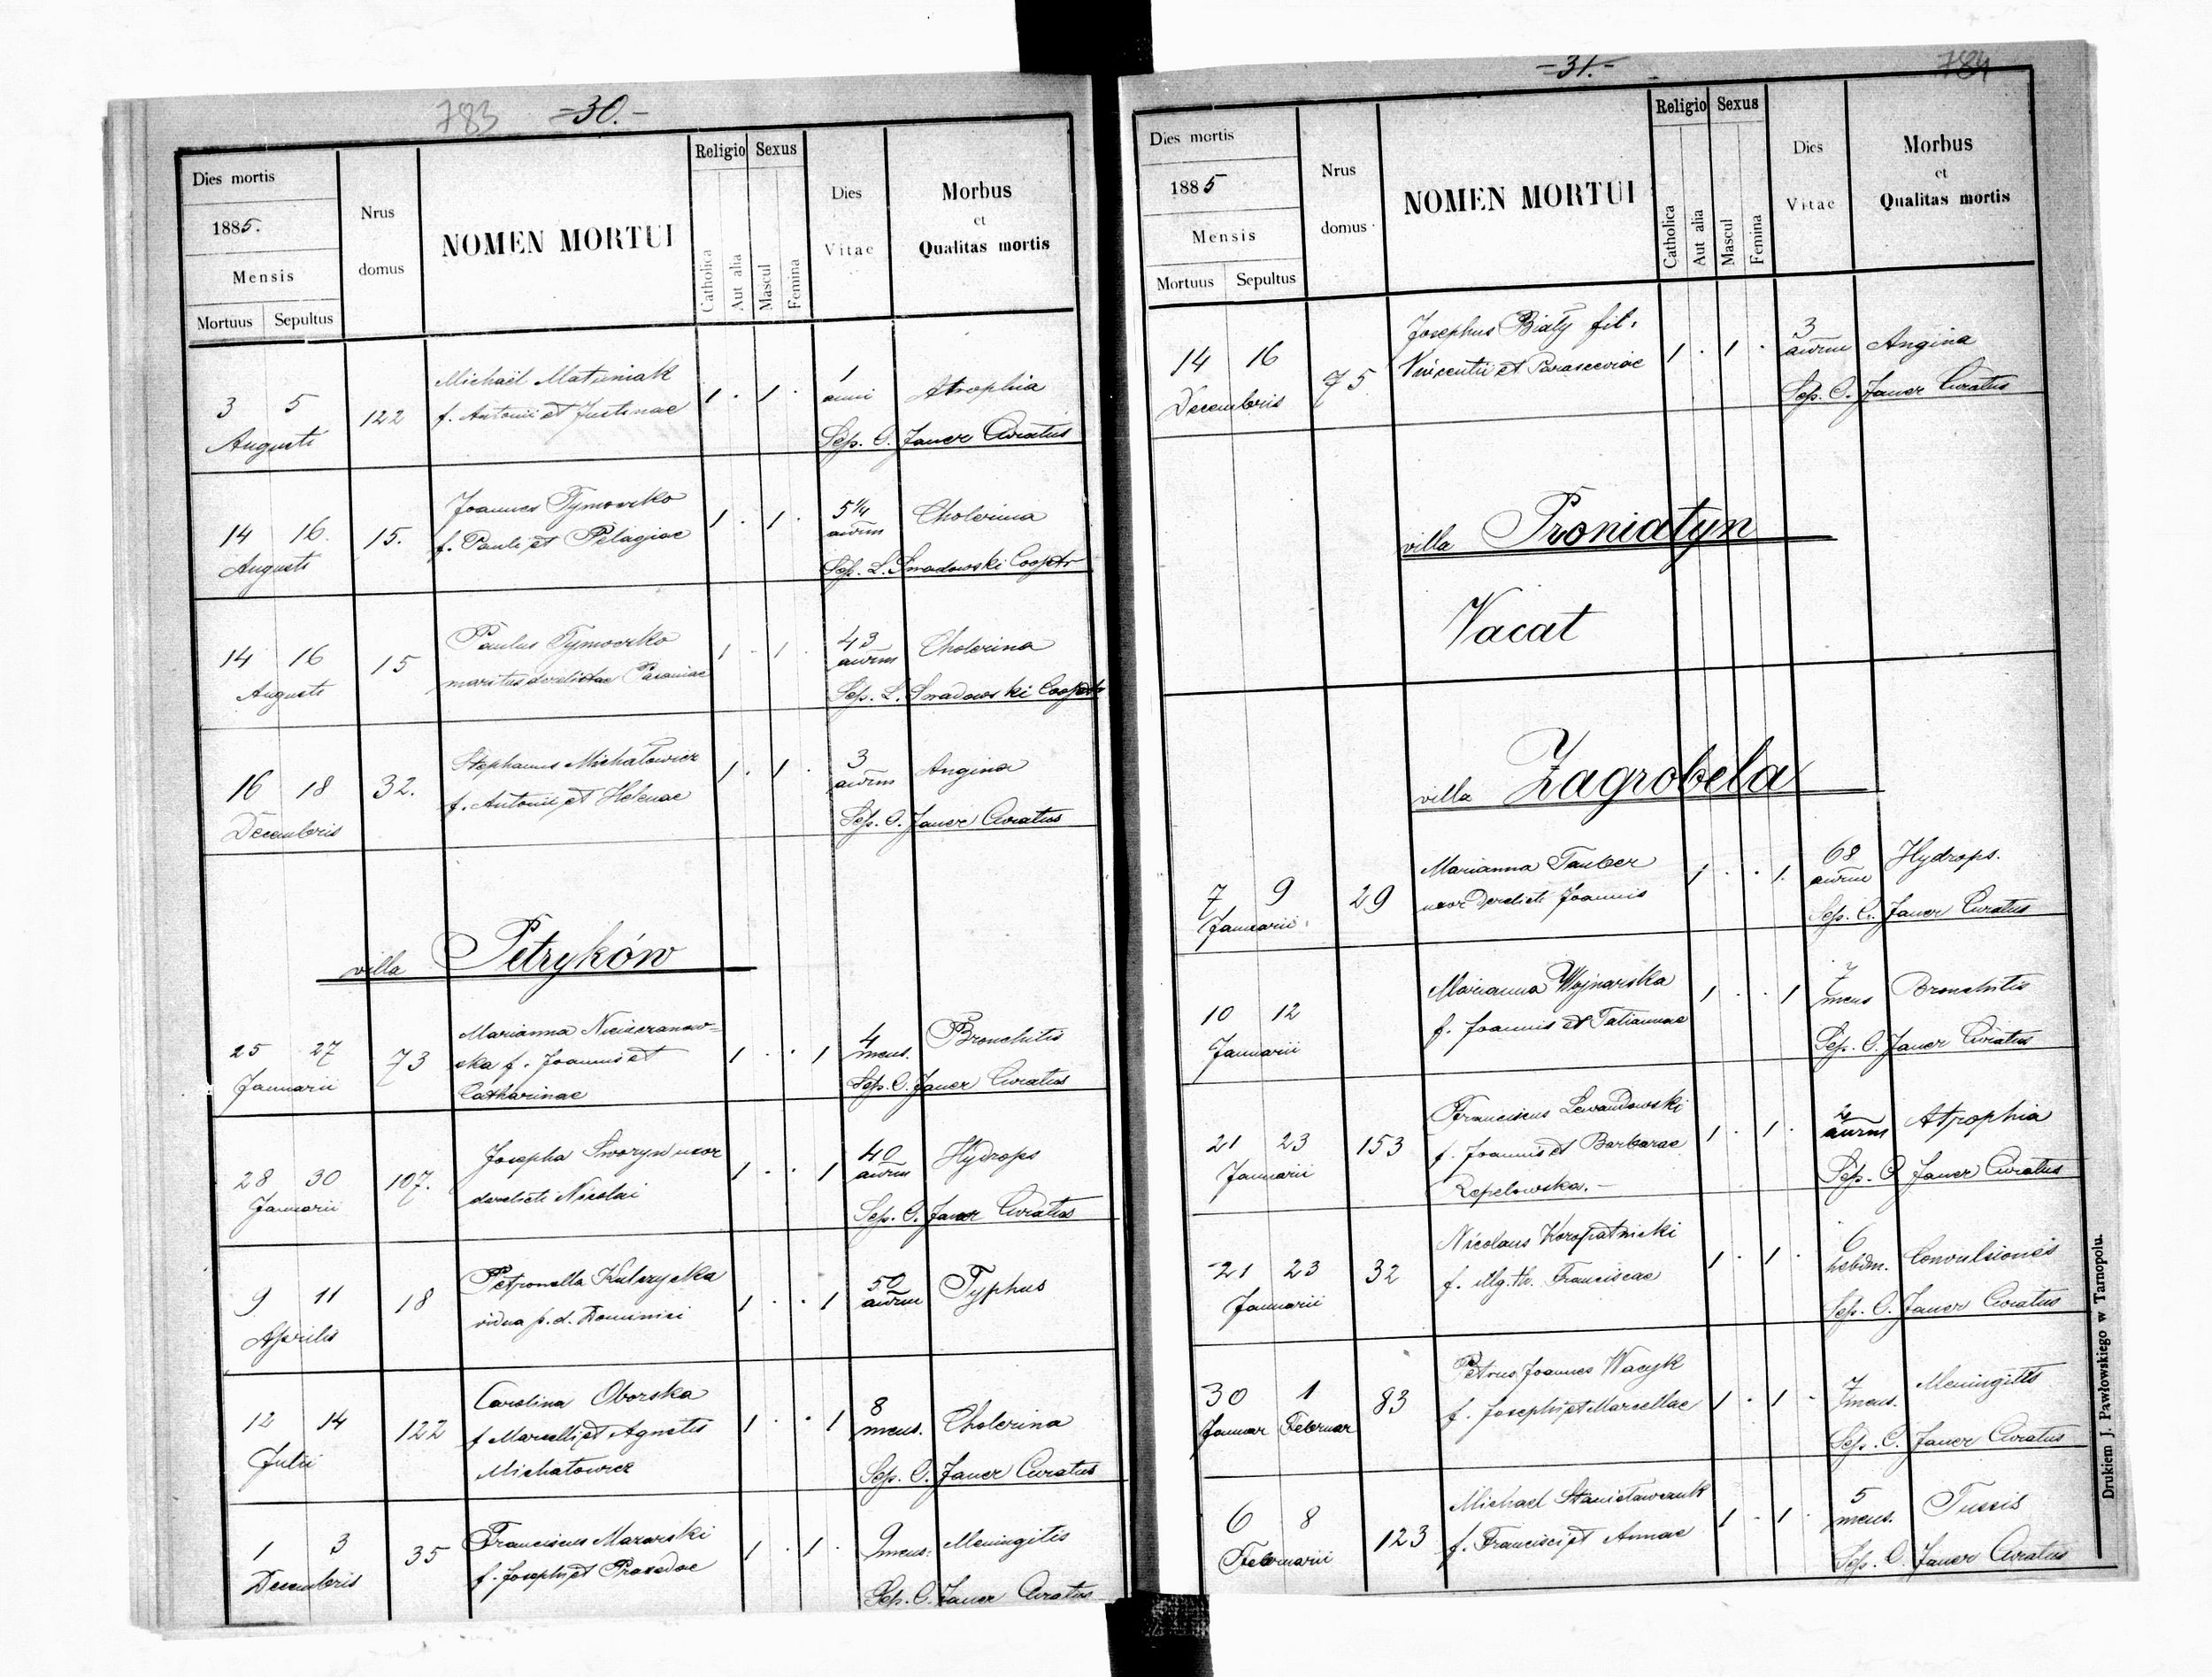 783 -30.-
Dies mortis
1885.
Mensis
Mortuus Sepultus
Nrus domus
NOMEN MORTUI
Religio
Catholica
Aut alia
Sexus
Mascul
Femina
Dies Vitae
Morbus
et
Qualitas mortis
3 5 Augusti 122
Michaël Matuniak
f. Antonii et Justinae
1 . 1 .
1 anni
Atrophia
Sep. C. Janer Curatus
14 16. Augusti 15.
Joannes Tymoczko
f. Pauli et Pelagiae
1 . 1 .
5 1/4 annrm
Cholerina
Sep. L. Smadowski Cooptr
14 16 Augusti 15
Paulus Tymoczko
maritus derelictae Paraniae
1 . 1 .
43 annrm
Cholerina
Sep. L. Smadowski Cooptr
16 18 Decembris 32.
Stephanus Michałowicz
f. Antonii et Helenae
1 . 1 .
3 annrm
Angina
Sep. C. Janer Curatus
villa Petryków
25 27 Januarii 73
Marianna Niciezanow=
ska f. Joannis et
Catharinae
1 . . 1
4 mens.
Bronchitis
Sep. C. Janer Curatus
28 30 Januarii 107.
Josepha Sworyn uxor
derelicti Nicolai
1 . . 1
40 annrm
Hydrops
Sep. C. Janer Curatus
9 11 Aprilis 18
Petronella Kulczycka
vidua p. d. Dominici
1 . . 1
50 annrm
Typhus
12 14 Julii 122
Carolina Oborska
f Marcelli et Agnetis
Michałowicz
1 . . 1
8 mens.
Cholerina
Sep. C. Janer Curatus
1 3 Decembris 35
Franciscus Mazarski
f. Josephi et Praxedae
1 . 1 .
9 mens.
Meningitis
Sep. C. Janer Curatus
-31.- 784
Dies mortis
1885
Mensis
Mortuus Sepultus
Nrus domus
NOMEN MORTUI
Religio
Catholica
Aut alia
Sexus
Mascul
Femina
Dies Vitae
Morbus
et
Qualitas mortis
14 16 Decembris 75
Josephus Biały fil.
Vincentii et Parasceviae
1 . 1 .
3 annrm
Angina
Sep. C. Janer Curatus
villa Proniatyn
Vacat
villa Zagrobela
7 9 Januarii 29
Marianna Tauber
uxor derelicti Joannis
1 . . 1.
68 annrm
Hydrops.
Sep. C. Janer Curatus
10 12 Januarii
Marianna Wojnarska
f. Joannis et Tatiannae
1 . . 1
7 mens
Bronchitis
Sep. C. Janer Curatus
21 23 Januarii 153
Franciscus Lewandowski
f. Joannis et Barbarae
Rzepelowska.-
1 . 1 .
2 annrm
Atrophia
Sep. C Janer Curatus
21 23 Januarii 32
Nicolaus Koropatnicki
f. illg. th. Franciscae
1 . 1 .
6 hebdm.
Convulsiones
Sep. C. Janer Curatus
30 1 Januar Februar 83
Petrus Joannes Wacyk
f. Josephi et Marcellae
1 . 1 .
7 mens.
Meningitis
Sep. C. Janer Curatus
6 8 Februarii 123
Michael Stanisławczuk
f. Francisci et Annae
1 . 1 .
5 mens.
Tussis
Sep. C. Janer Curatus
Drukiem J. Pawłowskiego w Tarnopolu.